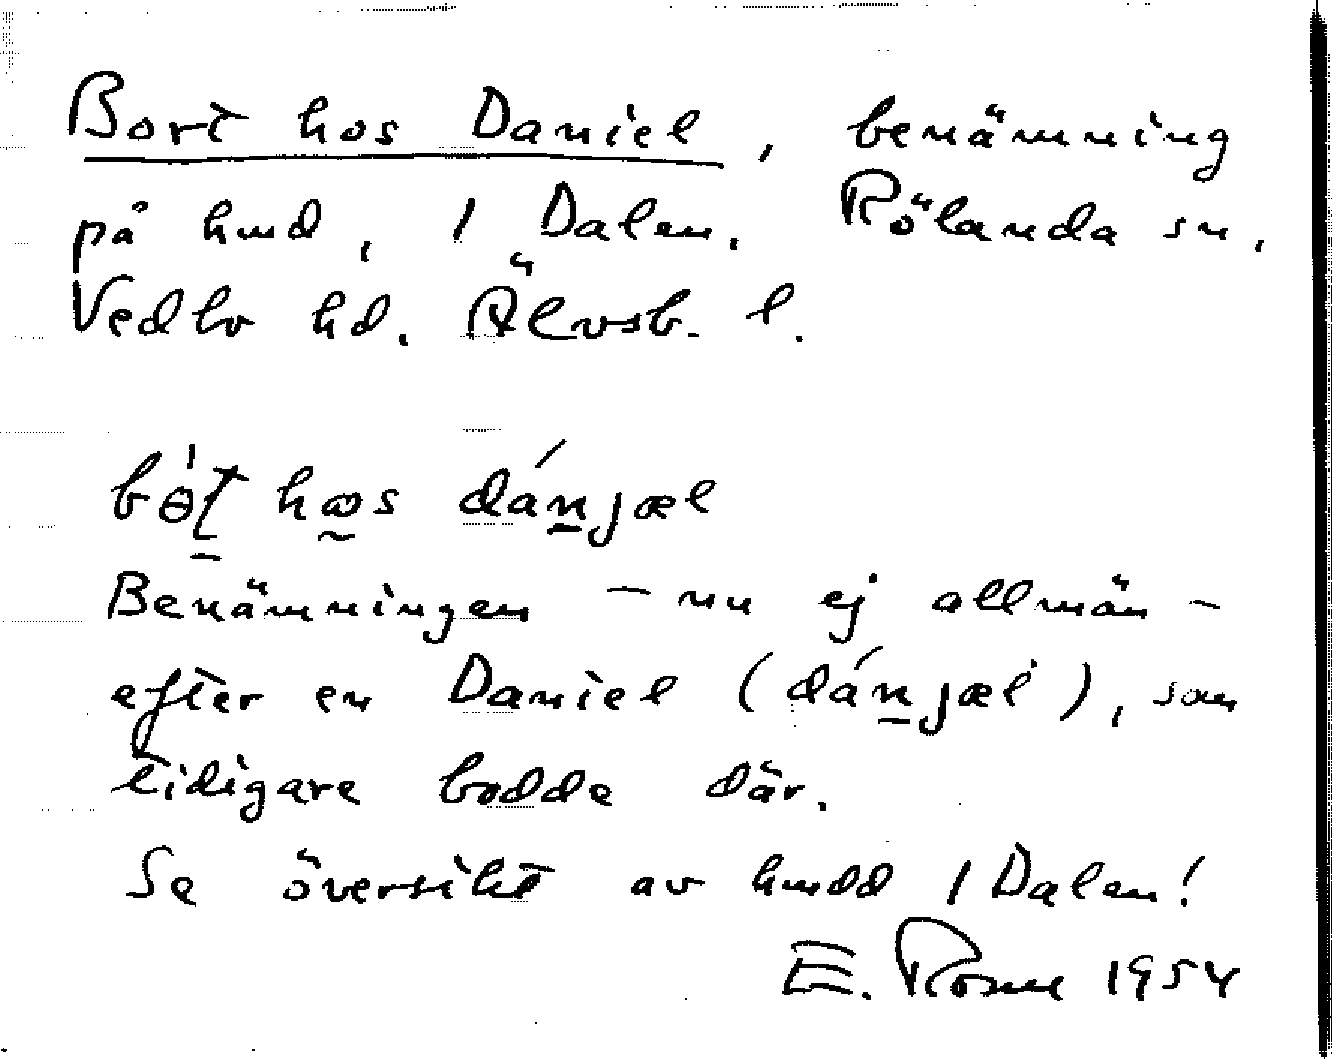 Bort hos Daniel, benämning
på hmd, 1 Dalen, Rölanda sn,
Vedbo hd. Älvsb. l.
bɵ́t hɷs dánjæl
Benämningen – nu ej allmän –
efter en Daniel (dánjæl), som
tidigare bodde där.
Se översikt av hmdd 1 Dalen!
E. Rosne 1954